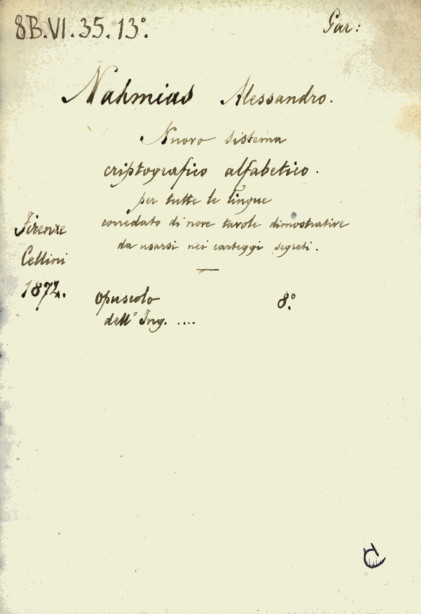 8B.VI.35.13°.
Gar:
Nahmias Alessandro.
Nuovo sistema
criptografico alfabetico.
per tutte le lingue
corredato di nove tavole dimostrative
da usarsi nei carteggi segreti.
Firenze
Cellini
1872.
opuscolo 8°
dell' Ing. ....
C